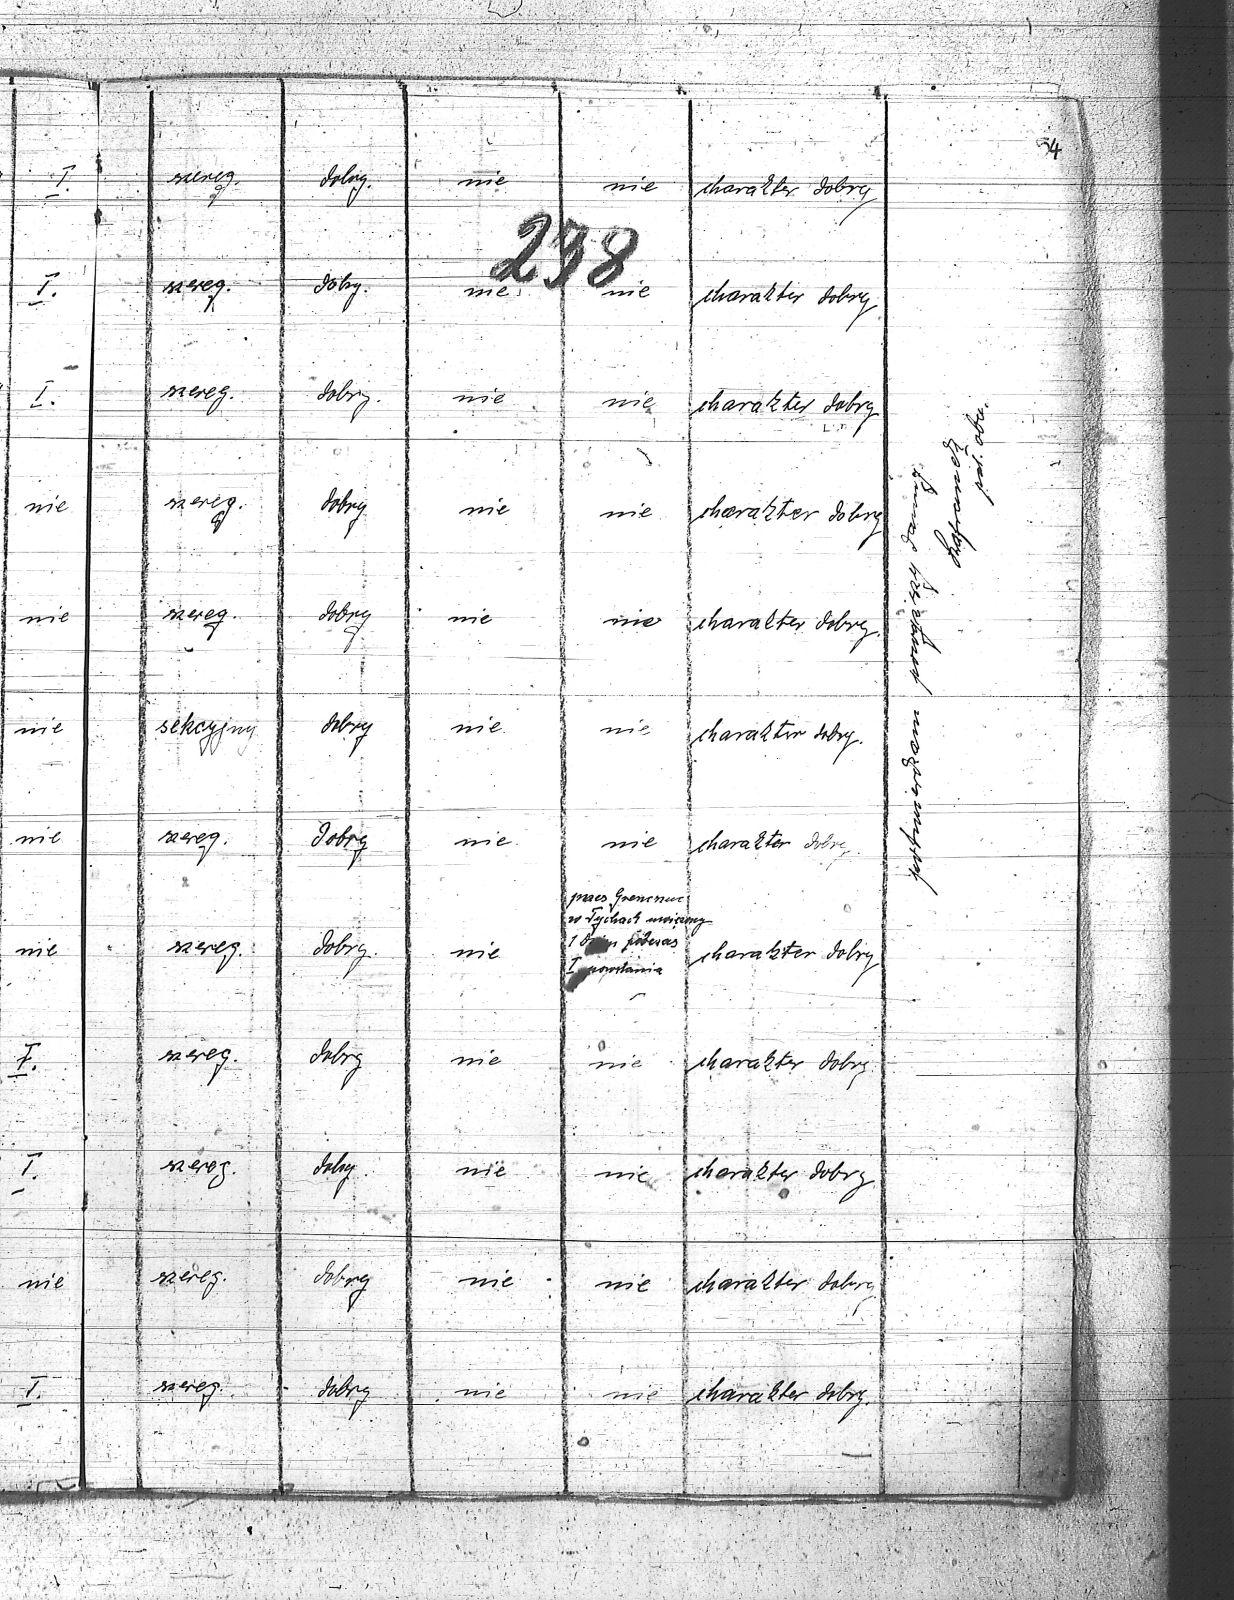 54
I. szereg. dobry. nie nie charakter dobry
238
I. szereg. dobry. nie nie charakter dobry
I. szereg. dobry. nie nie charakter dobry
nie szereg. dobry nie nie charakter dobry
nie szereg. dobry nie nie charakter dobry.
nie sekcyjny dobry nie nie charakter dobry.
nie szereg. dobry nie nie charakter dobry.
nie szereg. dobry. nie
przez Grencszuc
w Tychach
1
I powstania
charakter dobry
I. szereg. dobry nie nie charakter dobry
I. szereg. dobry. nie nie charakter dobry
nie szereg. dobry nie nie charakter dobry
I. szereg. dobry nie nie charakter dobry.